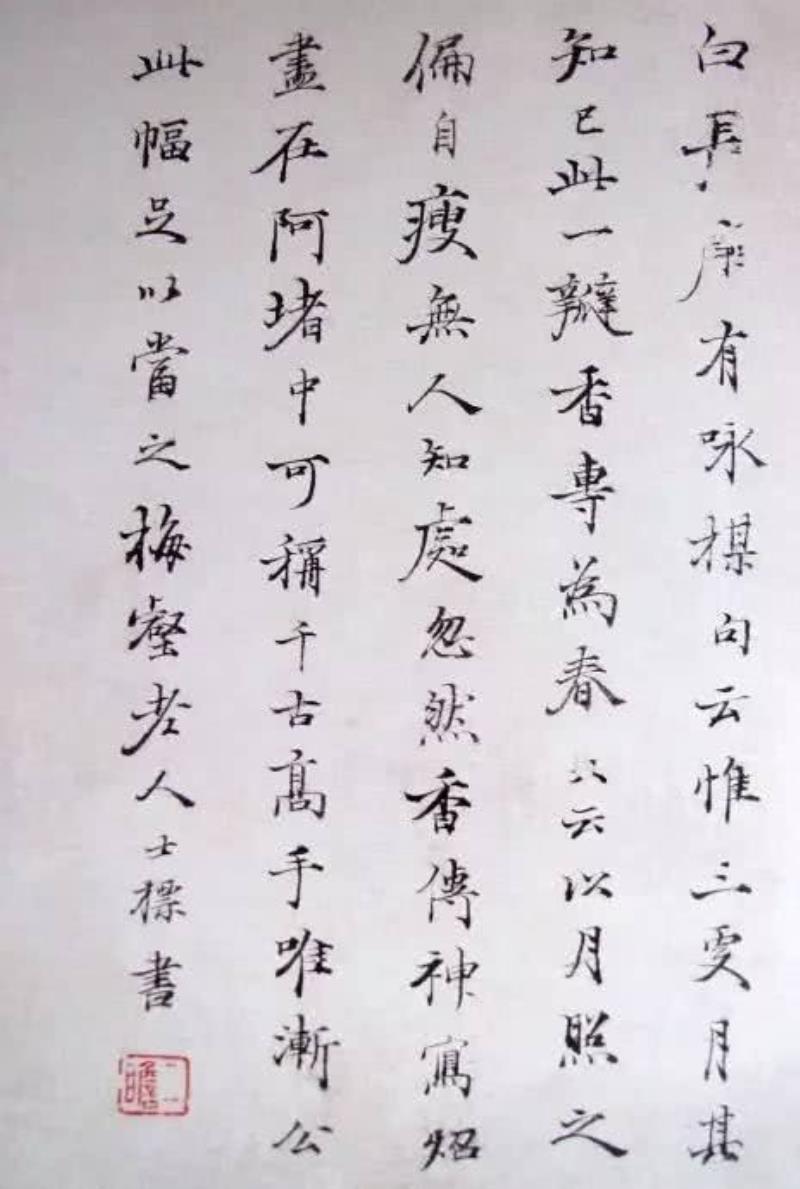 白長有咏楳句云惟三更月其
知己此一瓣香專為春又云以月照之
偏自瘦無人知處忽然香傳神寫炤
盡在阿堵中可稱千古高手唯漸公
此幅足以當之梅壑老人士標書
二瞻